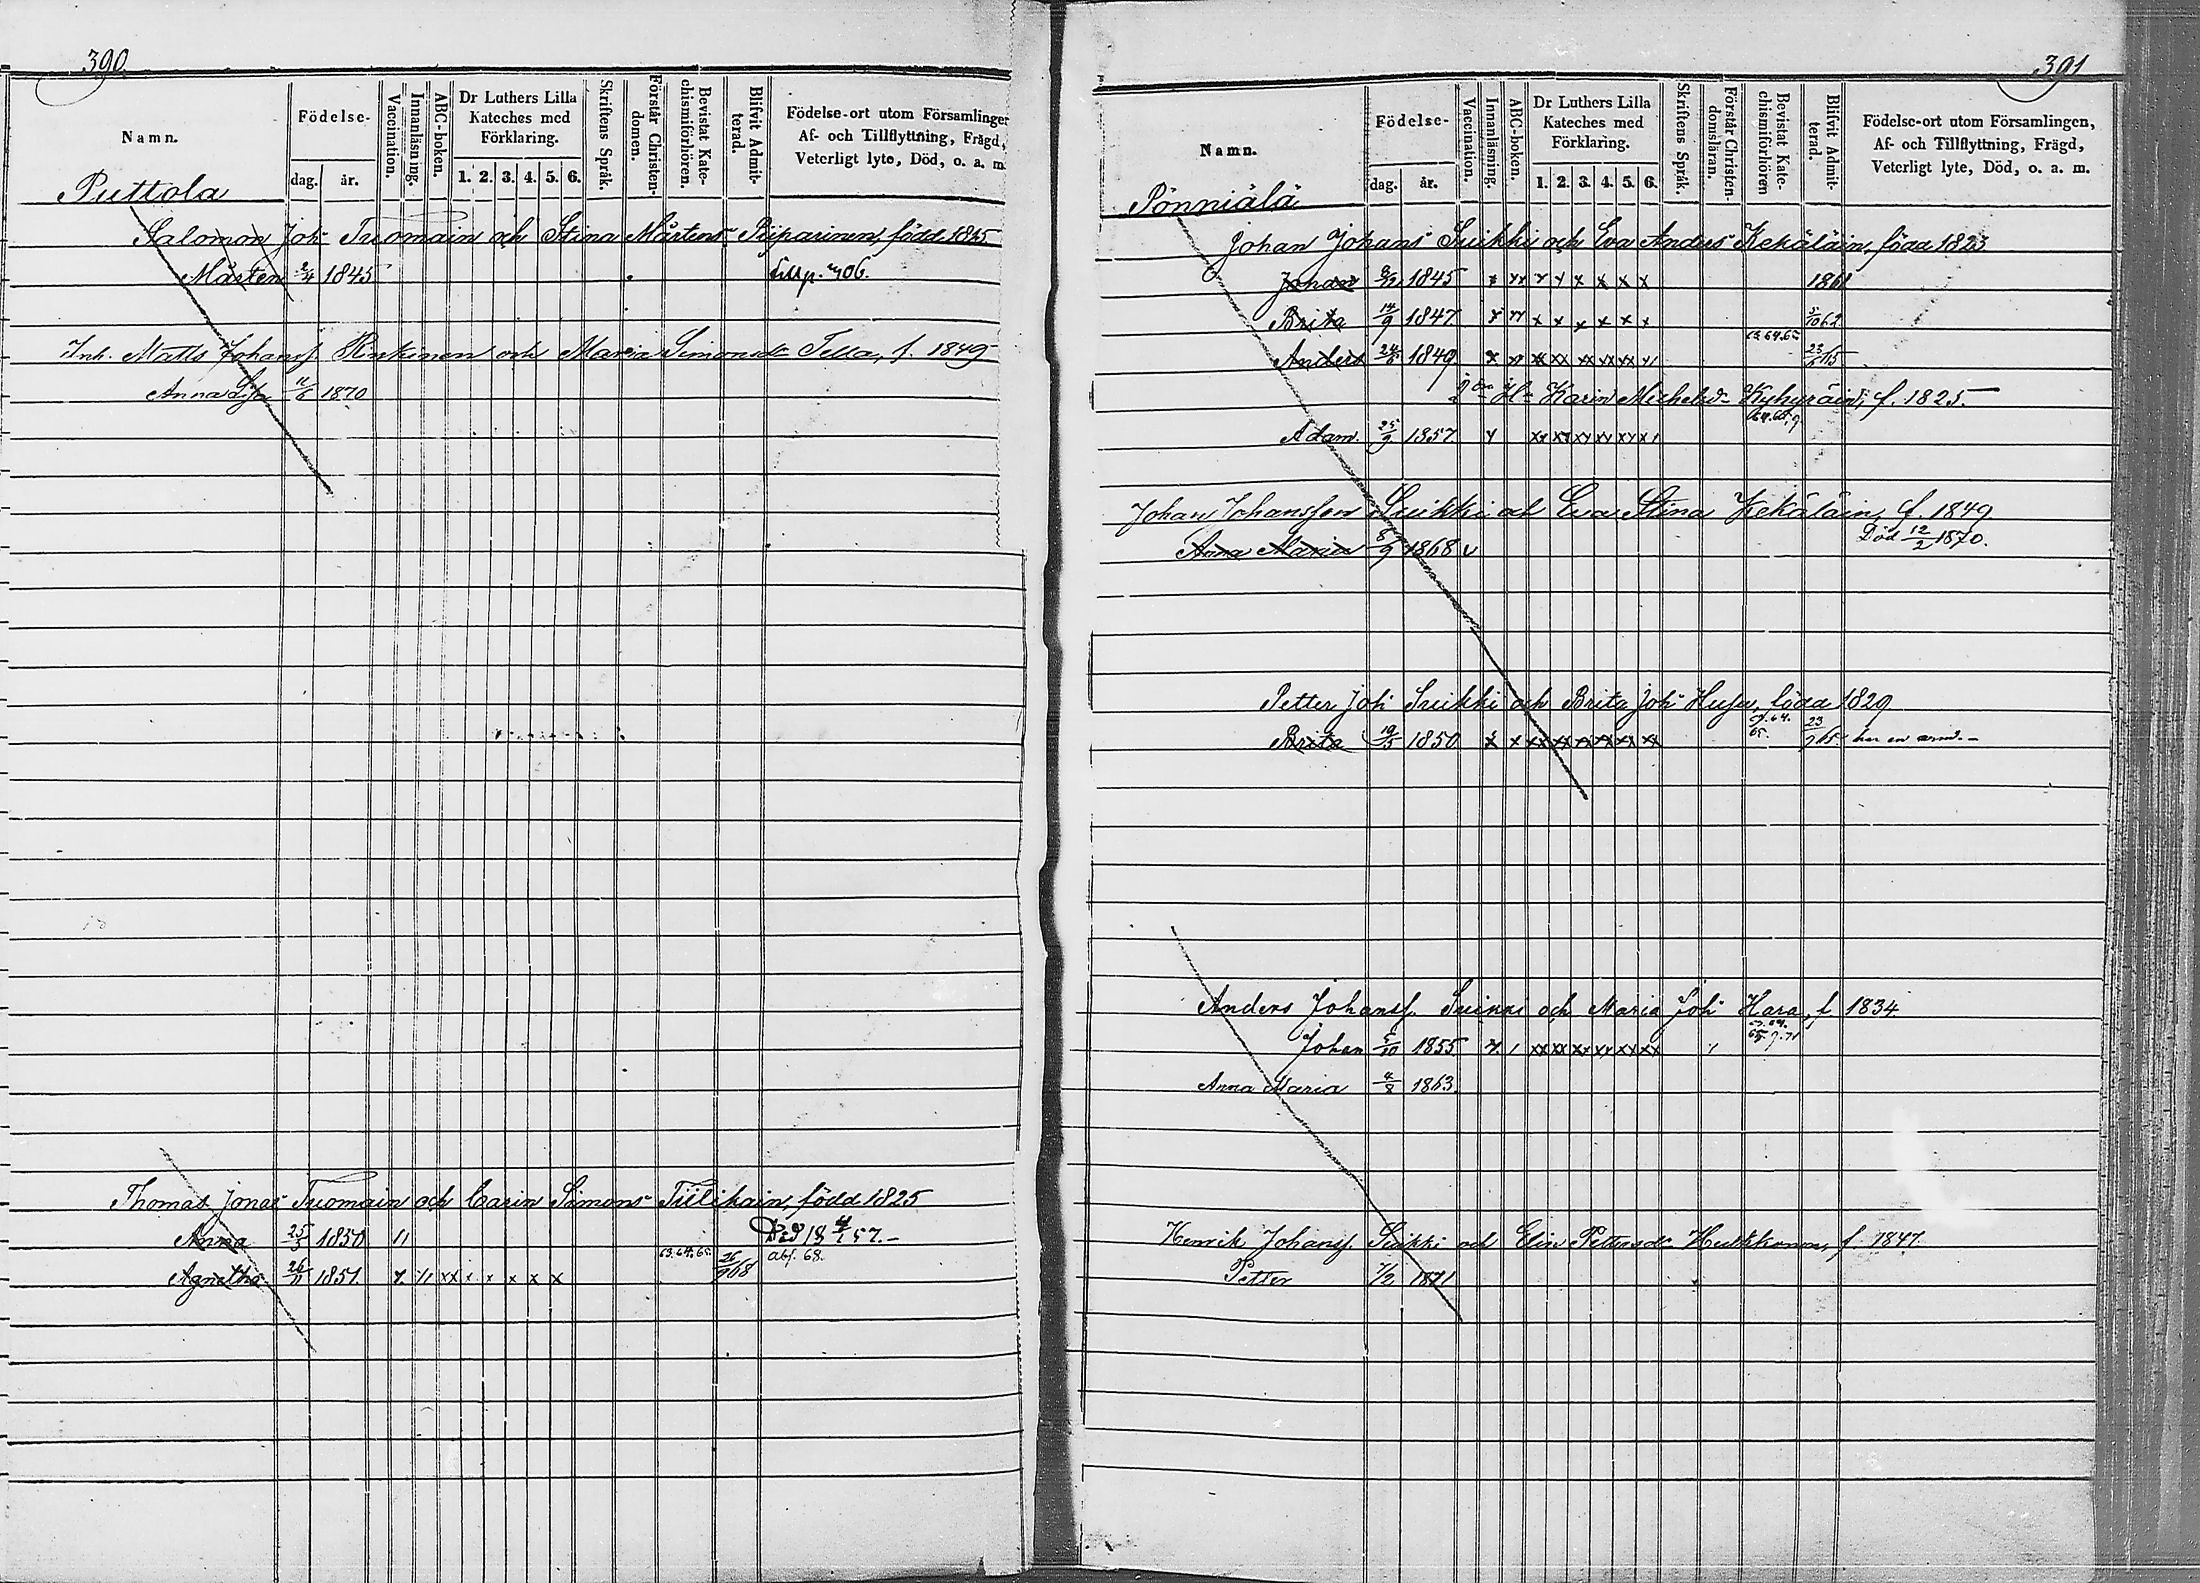 390
Namn.
Födelse-
dag. år.
Vaccination.
Innanläsning.
ABC-boken.
Dr Luthers Lilla
Kateches med
Förklaring.
1. 2. 3. 4. 5. 6.
Skriftens Språk.
Förstår Christen-
domen.
Bevistat Kate-
chismiförhören.
Blifvit Admit-
terad.
Födelse-ort utom Församlingen
Af- och Tillflyttning, Frägd,
Veterligt lyte, Död, o. a. m
Puttola
Salomon Joh Tuomain och Stina Mårtens Piiparinen, född 1825
Mårten 2/4 1845 406.
Inh. Matts Johanss. Rinkinen och Maria Simonsdr Tella, f. 1849
Anna Lisa 11/6 1870
Thomas Jonas Tuomain och Carin Simons Tiilikain, född 1825
Anna 25/3 1850 11 57.
Agnetha 26/11 1851. x 11 xx x x x x x 63.64.65. 26/9 68 abf. 68.
391
Namn.
Födelse-
dag. år.
Vaccination.
Innanläsning.
ABC-boken.
Dr Luthers Lilla
Kateches med
Förklaring.
1. 2. 3. 4. 5. 6.
Skriftens Språk.
Förstår Christen-
domsläran.
Bevistat Kate-
chismiförhören
Blifvit Admit-
terad.
Födelse-ort utom Församlingen,
Af- och Tillflyttning, Frägd,
Veterligt lyte, Död, o. a. m.
Pönniälä
Johan Johans Suikki och Eva Anders Kekäläin, född 1823
Johan 1845 x xx x x x x x x 1861
Brita 14/9 1847 x xx x x x x x x 5/10 62
Anders 24/6 1849 x xx xx xx xx xx xx x 63.64.65. 23/6 65
2dra H. Karin Michelsdr Kyhyräin, f. 1825.
Adam 25/9 1857 x xx xx xx xx xx x
Johan Johansson Suikki och Eva Stina Kekäläin, f. 1849
Anna Maria 8/9 1868 v Död 12/2 1870.
Petter Joh Suikki och Brita Joh Husu, född 1829
Brita 19/5 1850 x x xx xx xx xx xx xx 64. 65. 23/ 65. har en
Anders Johanss. Suikki och Maria Joh Hara, f 1834
Johan 5/10 1855 x 1 xx xx xx xx xx xx 71
Anna Maria 4/8 1863.
Henrik Johanss. Suikki och Elin Pettersdr Hulkkonen, f 1847.
Petter 7/2 1871